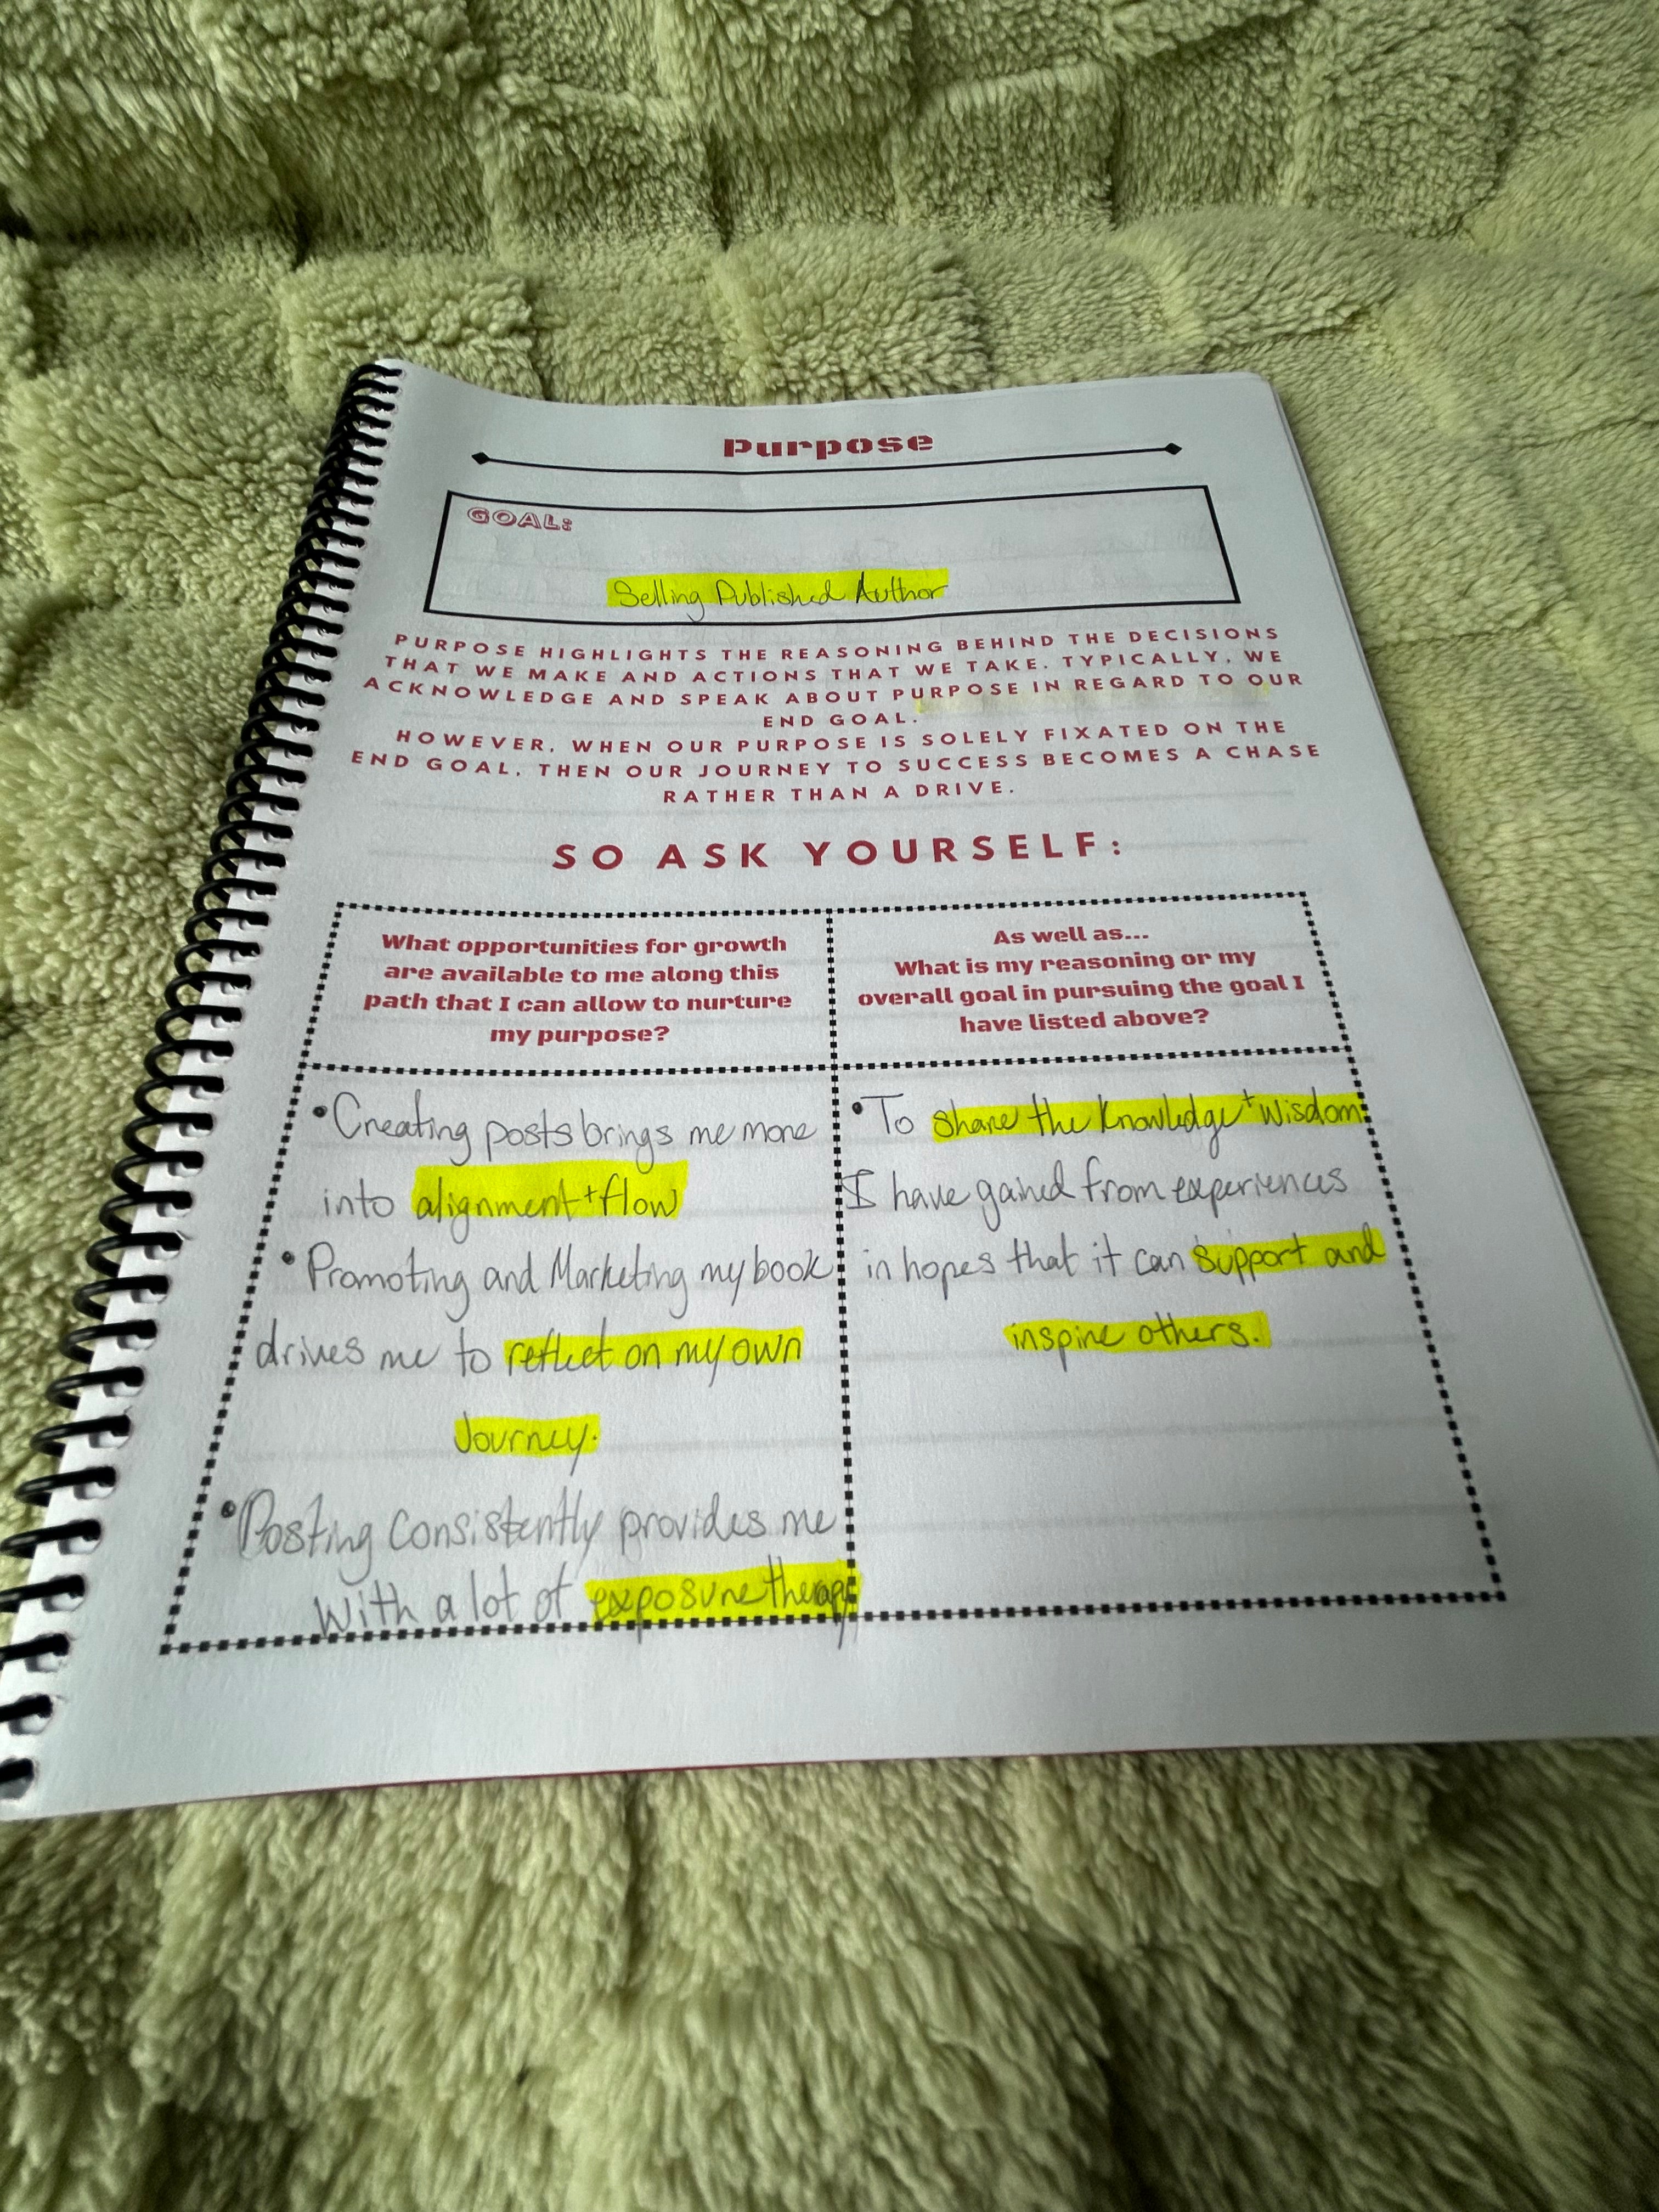 Purpose
GOAL:
Selling Published Author
PURPOSE HIGHLIGHTS THE REASONING BEHIND THE DECISIONS
THAT WE MAKE AND ACTIONS THAT WE TAKE. TYPICALLY, WE
ACKNOWLEDGE AND SPEAK ABOUT PURPOSE IN REGARD TO OUR
END GOAL.
HOWEVER, WHEN OUR PURPOSE IS SOLELY FIXATED ON THE
END GOAL, THEN OUR JOURNEY TO SUCCESS BECOMES A CHASE
RATHER THAN A DRIVE.
SO ASK YOURSELF:
What opportunities for growth
are available to me along this
path that I can allow to nurture
my purpose?
• Creating posts brings me more
into alignment + flow
• Promoting and Marketing my book
drives me to reflect on my own
Journey.
• Posting consistently provides me
with a lot of exposure therapy
As well as...
What is my reasoning or my
overall goal in pursuing the goal I
have listed above?
• To share the knowledge + wisdom
I have gained from experiences
in hopes that it can support and
inspire others.